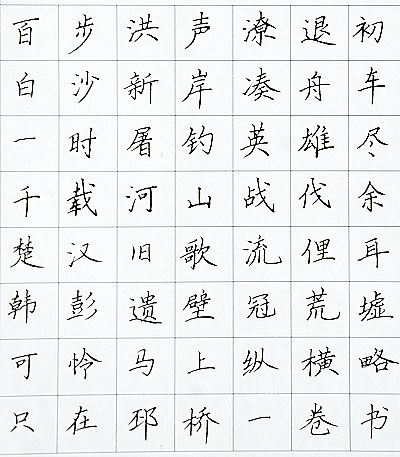 百步洪声潦退初
白沙新岸凑舟车
一时屠钓英雄尽
千载河山战伐余
楚汉旧歌流俚耳
韩彭遗壁冠荒墟
可怜马上纵横略
只在邳桥一卷书